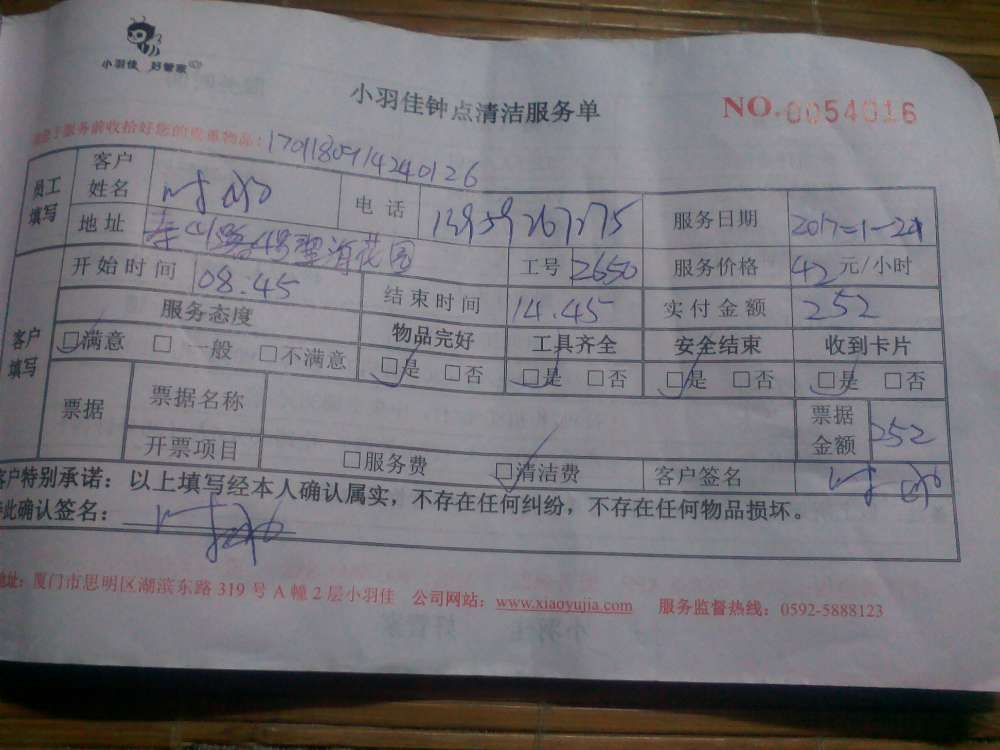 小羽佳 好管家
小羽佳钟点清洁服务单
NO.0054016
服务前收拾好您的贵重物品：1701180914240126
员工填写
客户姓名
电话 13959267275
服务日期 2017-1-21
地址 花园
工号 2650
服务价格 42元/小时
开始时间 08.45
结束时间 14.45
实付金额 252
客户填写
服务态度 物品完好 工具齐全 安全结束 收到卡片
□满意 □一般 □不满意 □是 □否 □是 □否 □是 □否 □是 □否
票据
票据名称
票据金额 252
开票项目 □服务费 □清洁费 客户签名
客户特别承诺：以上填写经本人确认属实，不存在任何纠纷，不存在任何物品损坏。
此确认签名：
地址：厦门市思明区湖滨东路319号A幢2层小羽佳 公司网站：www.xiaoyujia.com 服务监督热线：0592-5888123